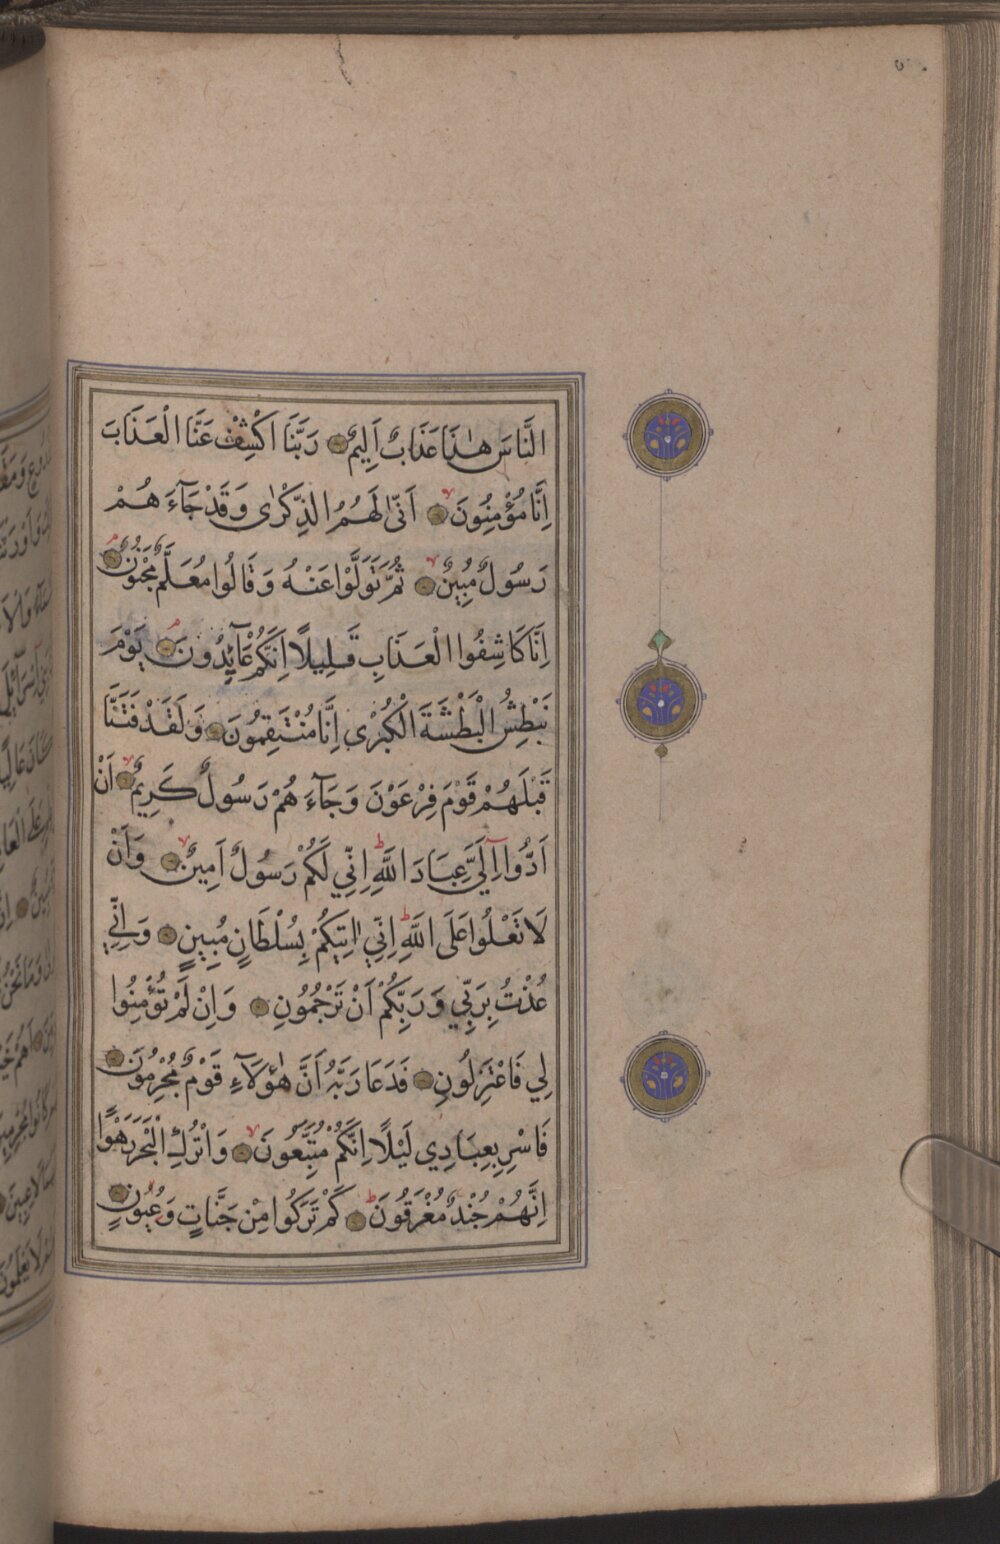 النَّاسَ هٰذَا عَذَابٌ اَلِيمٌ ۝ رَبَّنَا اكْشِفْ عَنَّا الْعَذَابَ
اِنَّا مُؤْمِنُونَ ۝ اَنّٰى لَهُمُ الذِّكْرٰى وَقَدْ جَآءَهُمْ
رَسُولٌ مُبِينٌ ۝ ثُمَّ تَوَلَّوْا عَنْهُ وَقَالُوا مُعَلَّمٌ مَجْنُونٌ ۝
اِنَّا كَاشِفُوا الْعَذَابِ قَلِيلًا اِنَّكُمْ عَآئِدُونَ ۝ يَوْمَ
نَبْطِشُ الْبَطْشَةَ الْكُبْرٰى اِنَّا مُنْتَقِمُونَ ۝ وَلَقَدْ فَتَنَّا
قَبْلَهُمْ قَوْمَ فِرْعَوْنَ وَجَآءَهُمْ رَسُولٌ كَرِيمٌ ۝ اَنْ
اَدُّوا اِلَيَّ عِبَادَ اللّٰهِ اِنِّي لَكُمْ رَسُولٌ اَمِينٌ ۝ وَاَنْ
لَا تَعْلُوا عَلَى اللّٰهِ اِنِّي اٰتِيكُمْ بِسُلْطَانٍ مُبِينٍ ۝ وَاِنِّي
عُذْتُ بِرَبِّي وَرَبِّكُمْ اَنْ تَرْجُمُونِ ۝ وَاِنْ لَمْ تُؤْمِنُوا
لِي فَاعْتَزِلُونِ ۝ فَدَعَا رَبَّهُ اَنَّ هٰؤُلَآءِ قَوْمٌ مُجْرِمُونَ ۝
فَاَسْرِ بِعِبَادِي لَيْلًا اِنَّكُمْ مُتَّبَعُونَ ۝ وَاتْرُكِ الْبَحْرَ رَهْوًا
اِنَّهُمْ جُنْدٌ مُغْرَقُونَ ۝ كَمْ تَرَكُوا مِنْ جَنَّاتٍ وَعُيُونٍ ۝